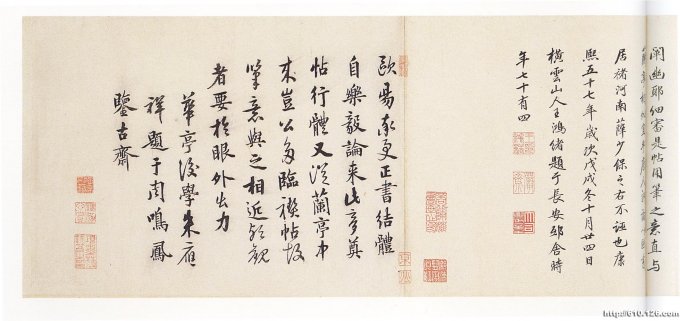 闡幽耶細審是帖用筆之意直与
居褚河南薛少保之右不誣也康
熙五十七年歲次戊戌冬十月廿四日
橫雲山人王鴻緒題于長安邸舍時
年七十有四
歐陽率更正書結體
自樂毅論來此夢奠
帖行體又從蘭亭中
來豈公多臨禊帖故
筆意與之相近欤觀
者要於眼外出力
華亭後學朱應
祥題于周鳴鳳
鑒古齋
http://610.126.com